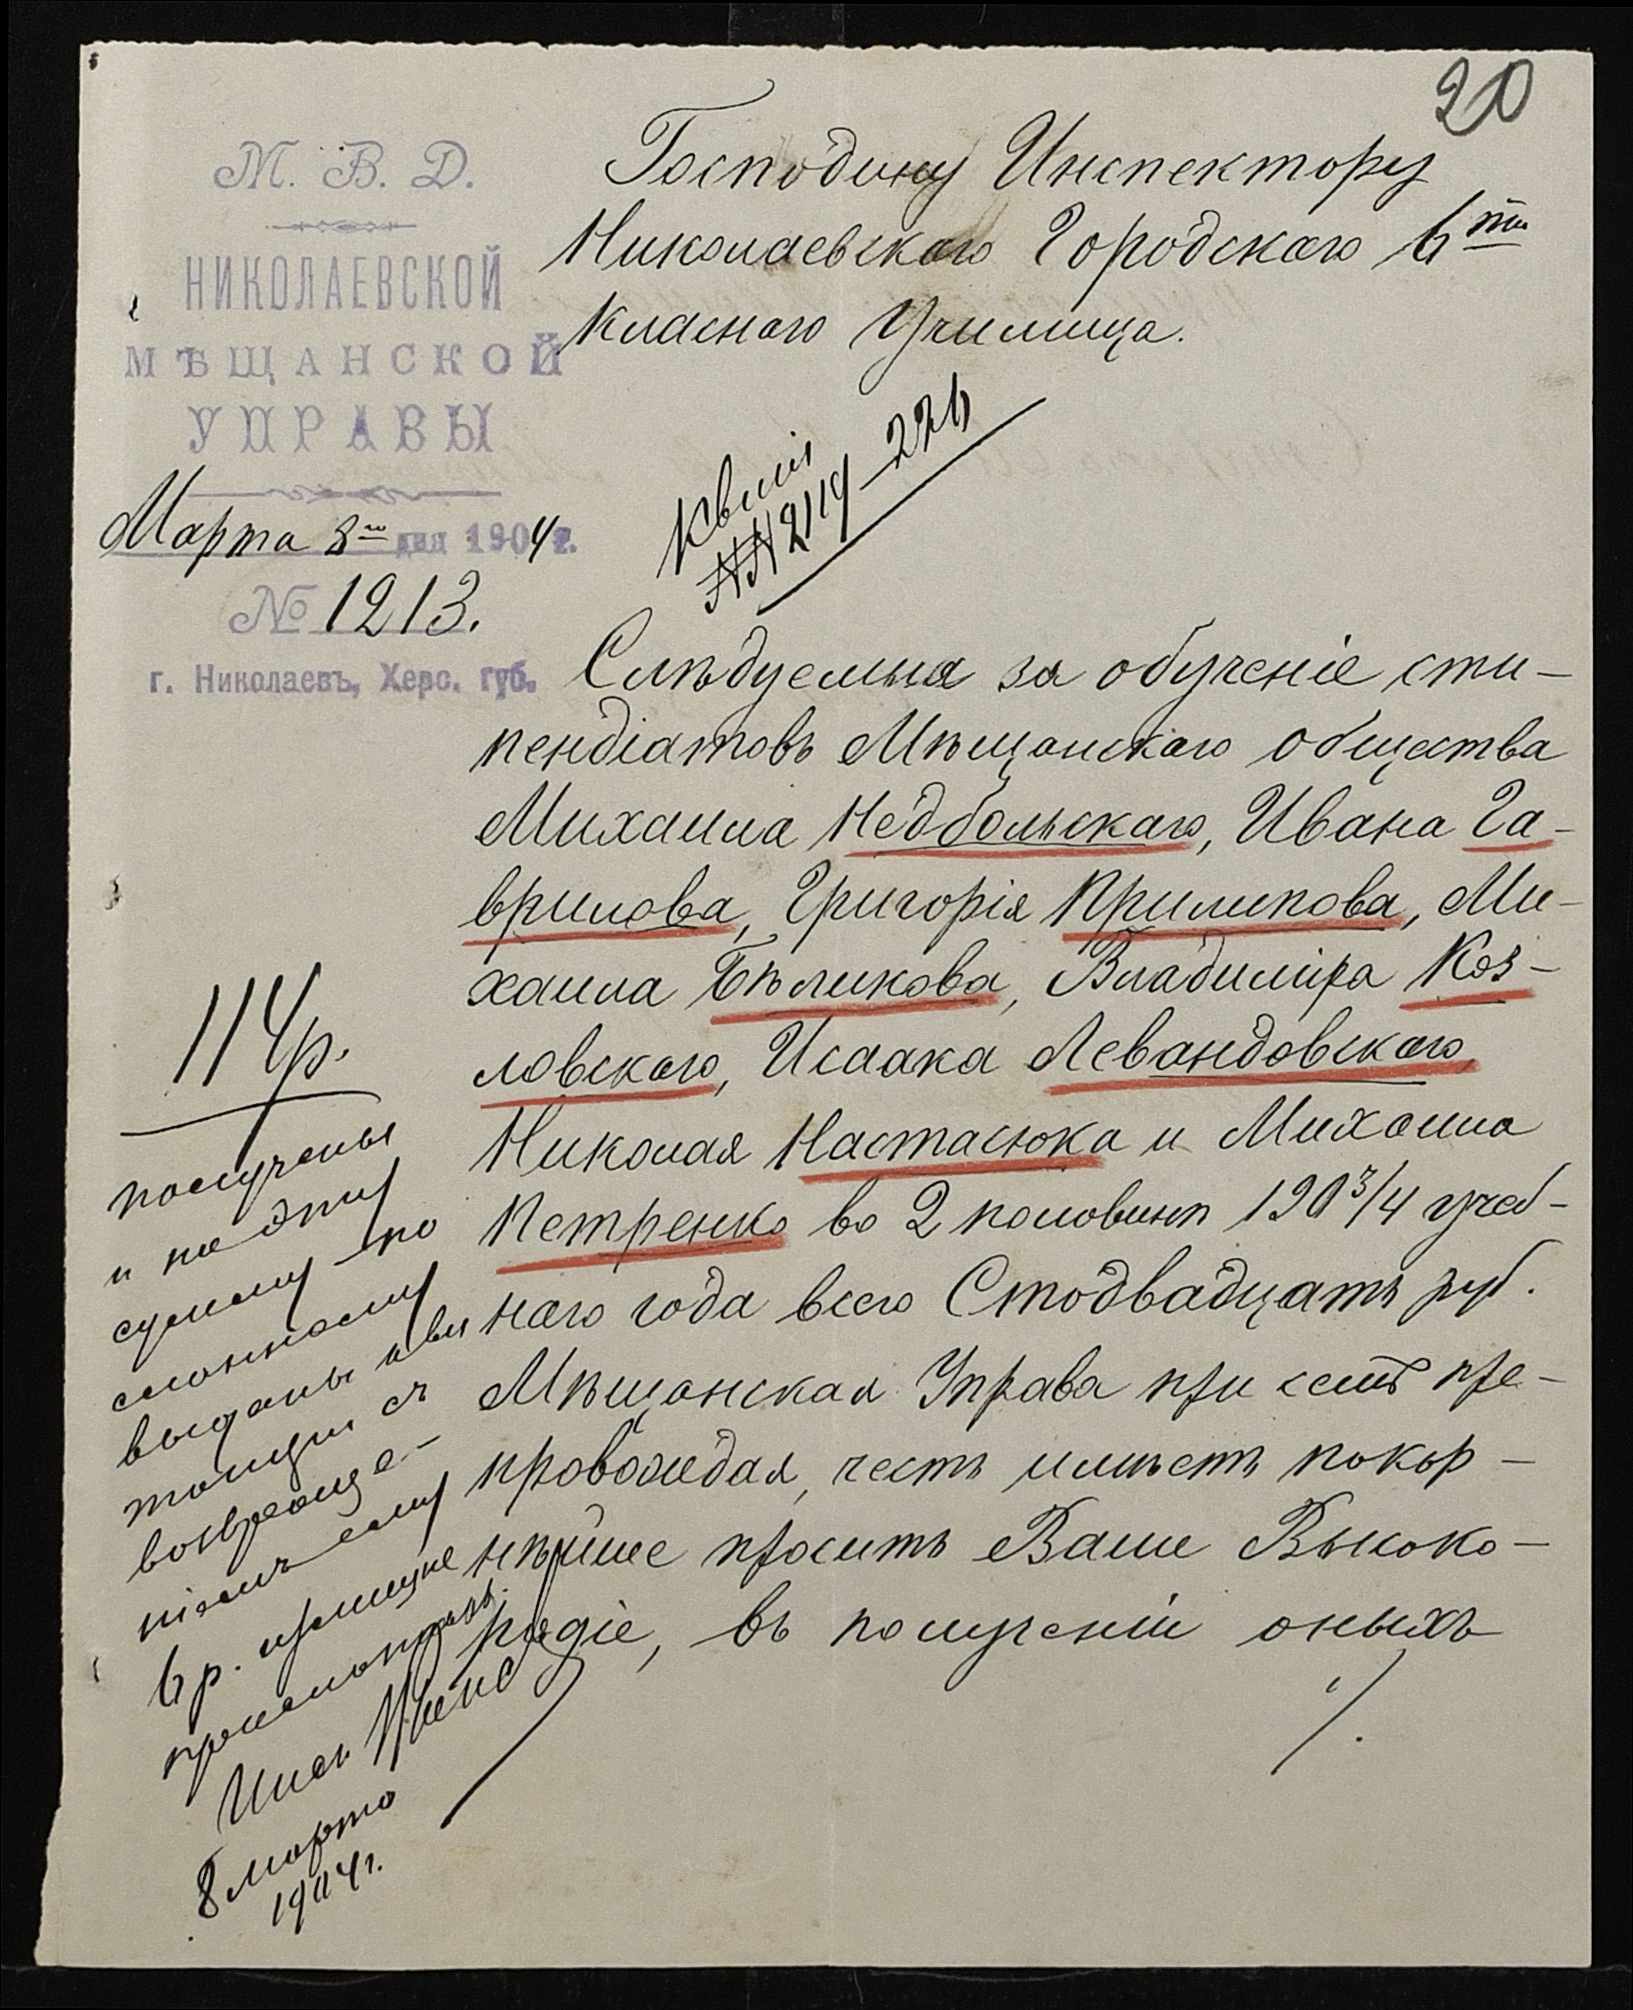 20
М. В. Д.
НИКОЛАЕВСКОЙ
МѢЩАНСКОЙ
УПРАВЫ
Марта 8го дня 1904 г.
№ 1213.
г. Николаевъ, Херс. губ.
Господину Инспектору
Николаевскаго Городскаго 6ти
класнаго Училища.
Слѣдуемыя за обученіе сти-
пендіатовъ Мѣщанскаго общества
Михаила Недбальскаго, Ивана Га-
врилова, Григорія Прилипова, Ми-
хаила Бѣликова, Владиміра Коз-
ловскаго, Исаака Левандовскаго,
Николая Настасюка и Михаила
Петренко во 2 половинѣ 190 3/4 учеб-
наго года всего Стодвадцать руб.
Мѣщанская Управа при семъ пре-
провождая, честь имѣетъ покор-
нѣйше просить Ваше Высоко-
родіе, въ полученіи оныхъ
./.
114 р.
получены
и на эту
сумму по
выданы кви
танціи съ
возвраще-
ніемъ ему
6 р.
8 марта
1904 г.